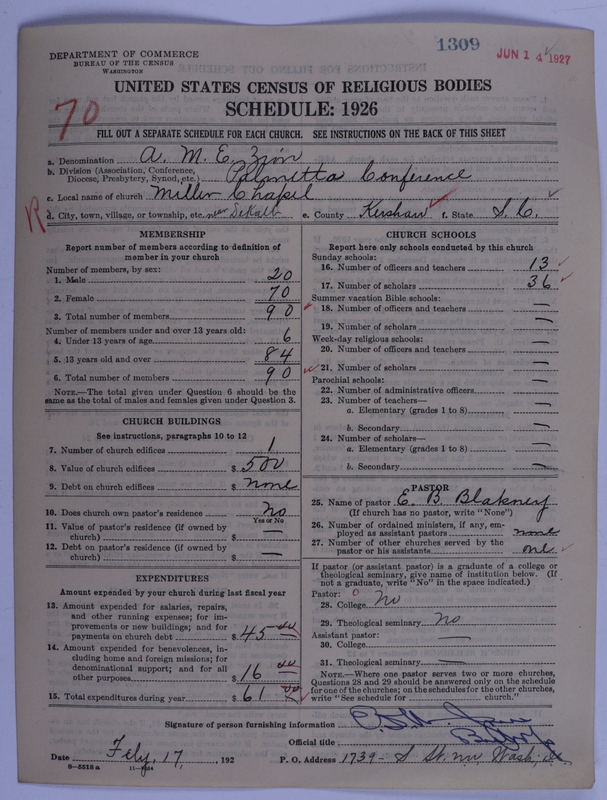 1309
JUN 14 1927
DEPARTMENT OF COMMERCE
BUREAU OF THE CENSUS
WASHINGTON
UNITED STATES CENSUS OF RELIGIOUS BODIES
SCHEDULE: 1926
70
FILL OUT A SEPARATE SCHEDULE FOR EACH CHURCH. SEE INSTRUCTIONS ON THE BACK OF THIS SHEET
a. Denomination A. M. E. Zion
b. Division (Association, Conference, Diocese, Presbytery, Synod, etc.) Palmetta Conference
c. Local name of church Miller Chapel
R
d. City, town, village, or township, etc. near DeKalb e. County Kershaw f. State S. C.
MEMBERSHIP
Report number of members according to definition of member in your church
Number of members, by sex:
1. Male 20
2. Female 70
3. Total number of members 90
Number of members under and over 13 years old:
4. Under 13 years of age 6
5. 13 years old and over 84
6. Total number of members 90
NOTE.—The total given under Question 6 should be the same as the total of males and females given under Question 3.
CHURCH BUILDINGS
See instructions, paragraphs 10 to 12
7. Number of church edifices 1
8. Value of church edifices $ 500
9. Debt on church edifices $ none
10. Does church own pastor's residence No
Yes or No
11. Value of pastor's residence (if owned by church) $ —
12. Debt on pastor's residence (if owned by church) $ —
EXPENDITURES
Amount expended by your church during last fiscal year
13. Amount expended for salaries, repairs, and other running expenses; for improvements or new buildings; and for payments on church debt $ 45 00
14. Amount expended for benevolences, including home and foreign missions; for denominational support; and for all other purposes $ 16 00
15. Total expenditures during year $ 61 00
CHURCH SCHOOLS
Report here only schools conducted by this church
Sunday schools:
16. Number of officers and teachers 13
17. Number of scholars 36
Summer vacation Bible schools:
18. Number of officers and teachers —
19. Number of scholars —
Week-day religious schools:
20. Number of officers and teachers —
21. Number of scholars —
Parochial schools:
22. Number of administrative officers —
23. Number of teachers—
a. Elementary (grades 1 to 8) —
b. Secondary —
24. Number of scholars—
a. Elementary (grades 1 to 8) —
b. Secondary —
PASTOR
25. Name of pastor E. B. Blakney
(If church has no pastor, write "None")
26. Number of ordained ministers, if any, employed as assistant pastors none
27. Number of other churches served by the pastor or his assistants one
If pastor (or assistant pastor) is a graduate of a college or theological seminary, give name of institution below. (If not a graduate, write "No" in the space indicated.)
Pastor:
28. College No
29. Theological seminary No
Assistant pastor:
30. College —
31. Theological seminary —
NOTE.—Where one pastor serves two or more churches, Questions 28 and 29 should be answered only on the schedule for one of the churches; on the schedules for the other churches, write "See schedule for church."
Signature of person furnishing information
Official title
Date Feby 17, 192
P. O. Address 1739- S St. nw Wash,
8—5318 a